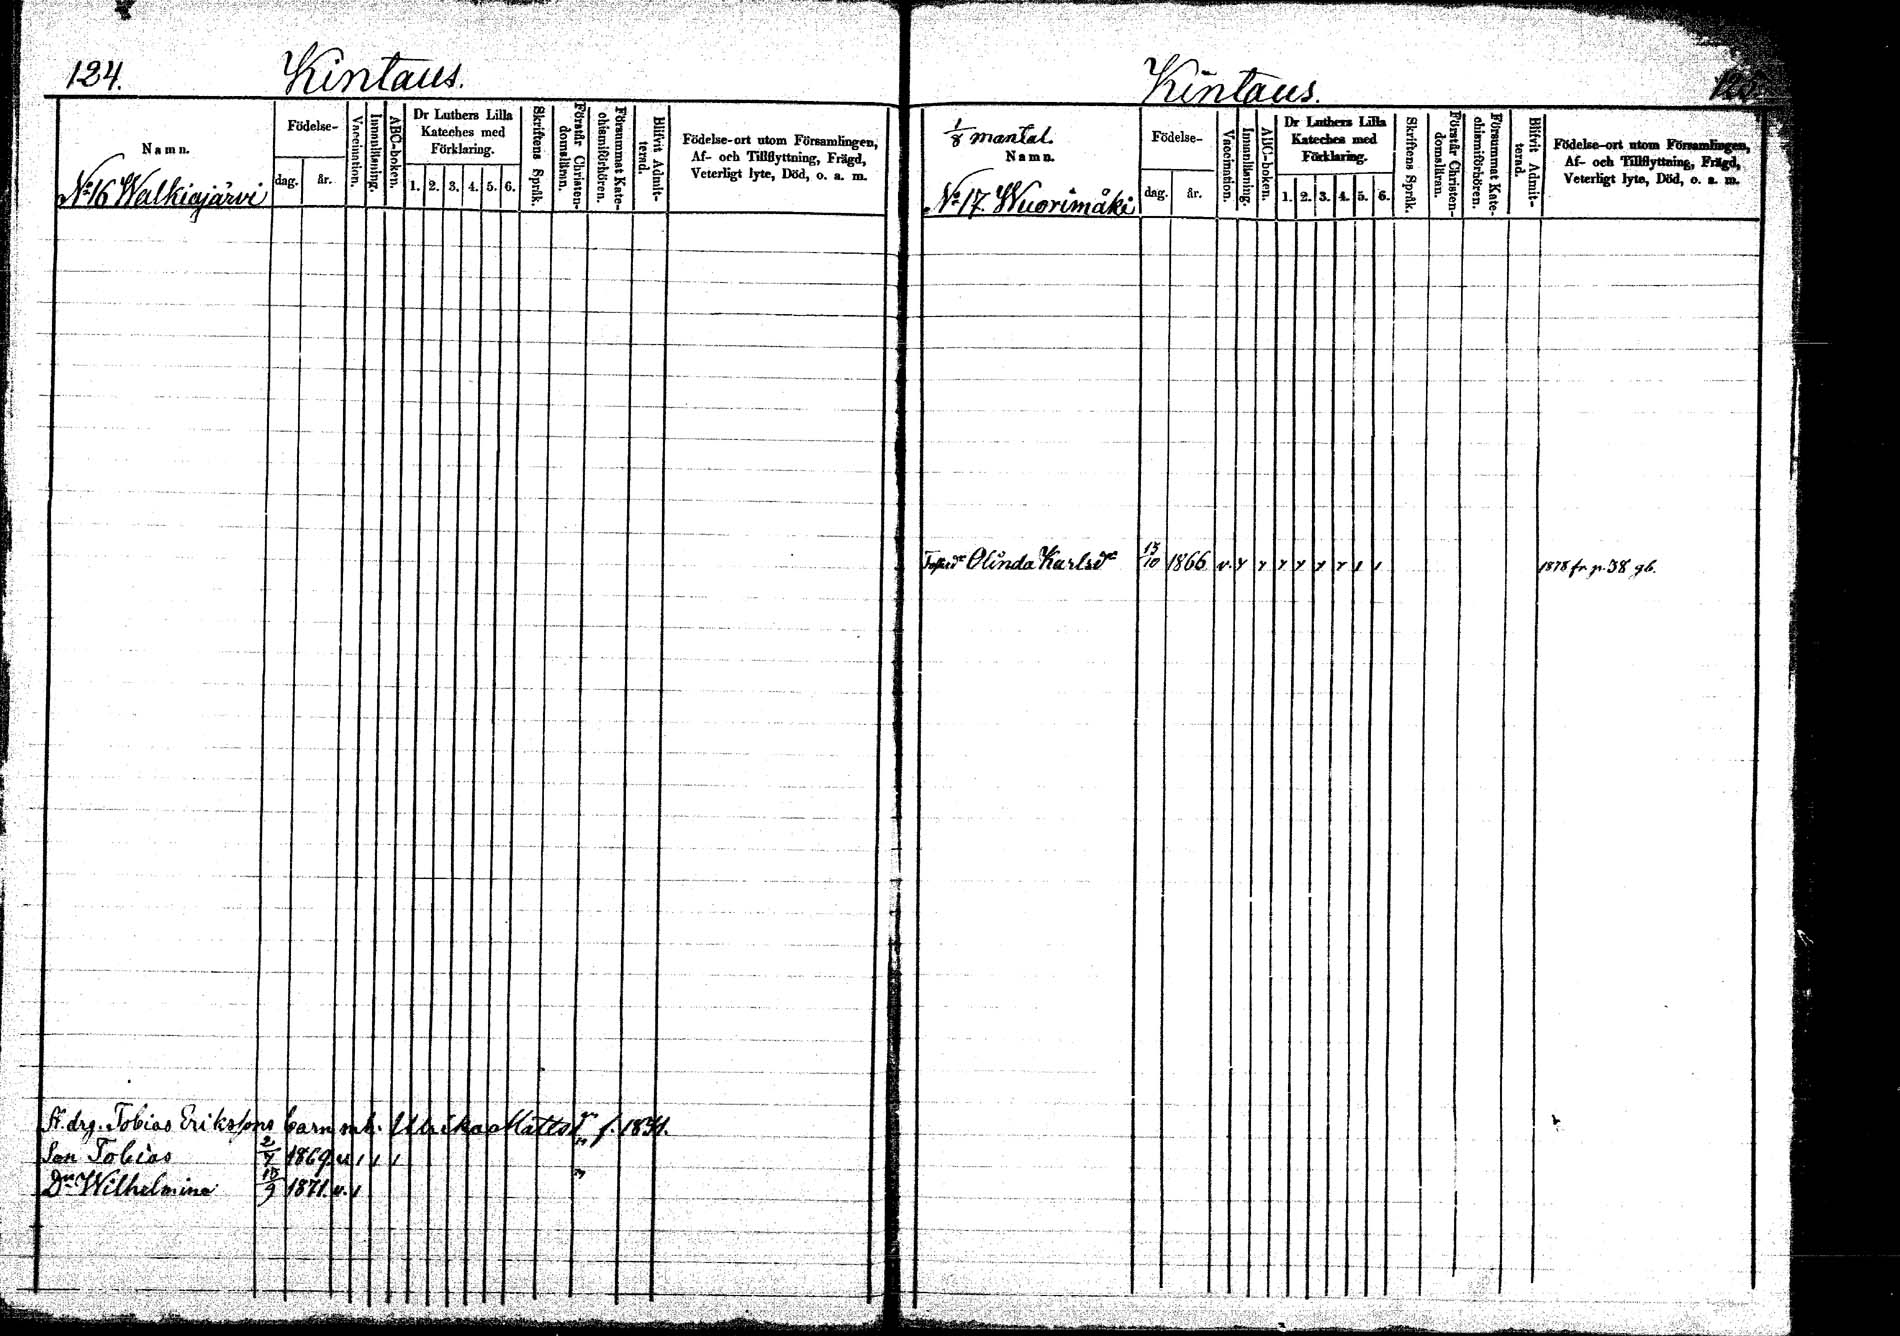 124.
Kintaus.
Namn.
No 16 Walkiajärvi
Födelse-
dag.
år.
Vaccination.
Innanläsning.
ABC-boken.
Dr Luthers Lilla
Kateches med
Förklaring.
1. 2. 3. 4. 5. 6.
Skriftens Språk.
Förstår Christen-
domslärnn.
Försummat Kate-
chismiförhören.
Blifvit Admit-
terad.
Födelse-ort utom Församlingen,
Af- och Tillflyttning, Frägd,
Veterligt lyte, Död, o. a. m.
St. drg. Tobias Erikssons barn mh. Ulrika Mattsdr f. 1831.
Son Tobias 2/7 1869. v. ı ı ı "
Dr Wilhelmina 15/9 1871. v. ı "
Kintaus.
125.
1/8 mantal.
Namn.
No 17. Wuorimäki
Födelse-
dag.
år.
Vaccination.
Innanläsning.
ABC-boken.
Dr Luthers Lilla
Kateches med
Förklaring.
1. 2. 3. 4. 5. 6.
Skriftens Språk.
Förstår Christen-
domsläran.
Försummat Kate-
chismiförhören.
Blifvit Admit-
terad.
Födelse-ort utom Församlingen,
Af- och Tillflyttning, Frägd,
Veterligt lyte, Död, o. a. m.
Olinda Karlsdr 13/10 1866 v. 1878 fr. p. 38 gb.